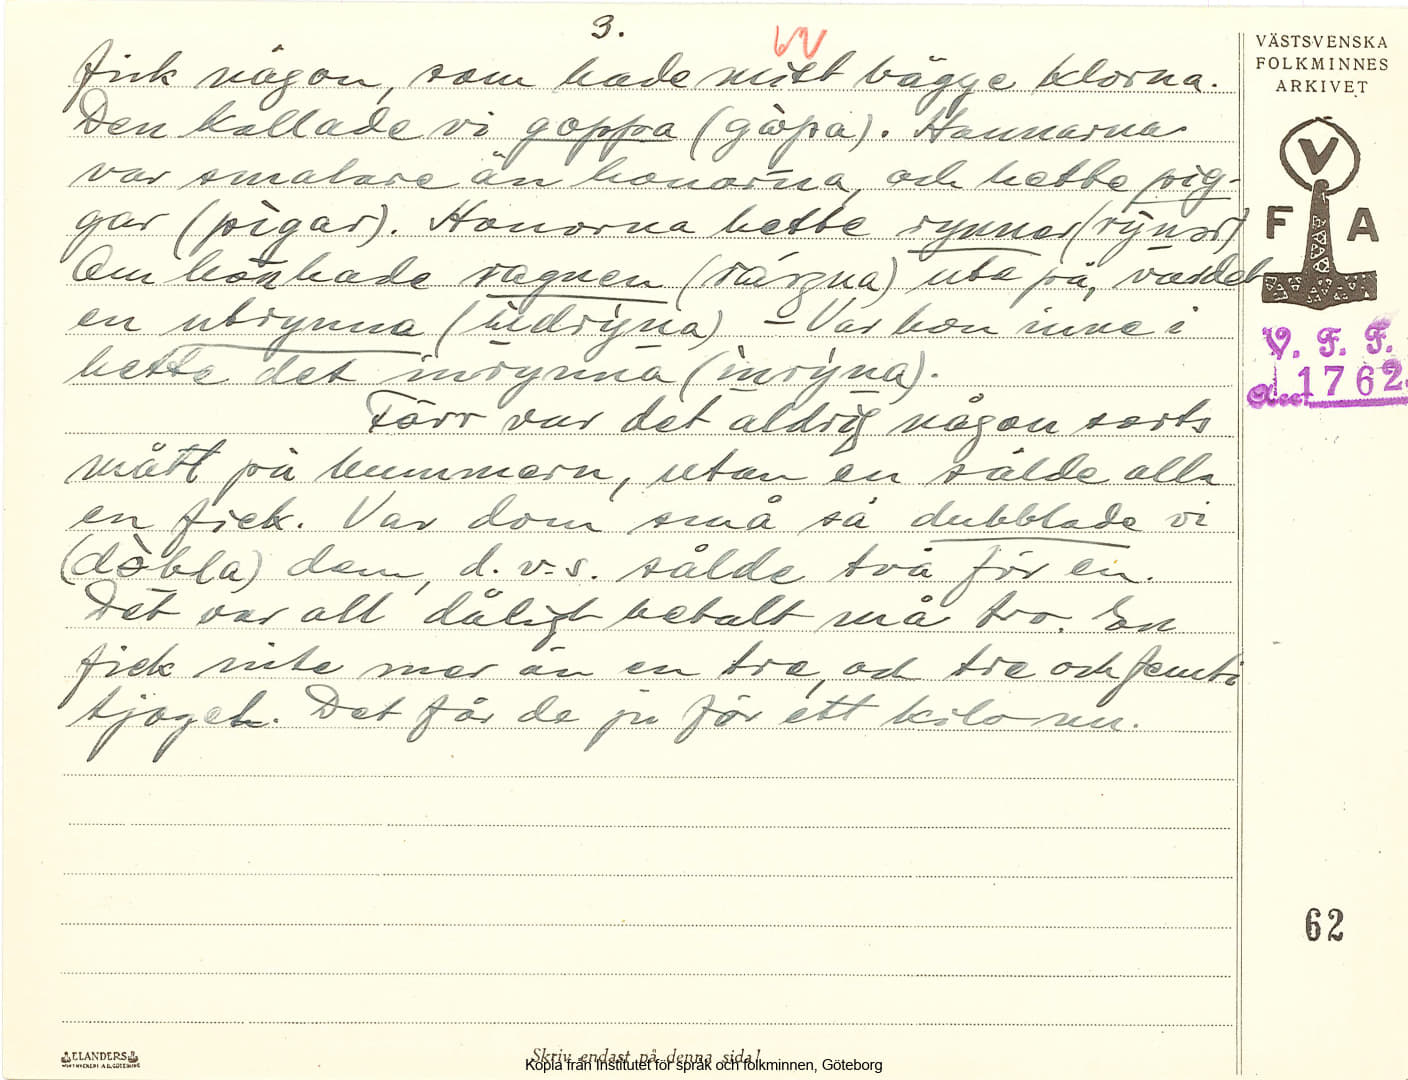 3.
62
fick någon, som hade mist bägge klorna.
Den kallade vi goppa (gòpa). Hannarna
var smalare än honorna, och hette pig-
gar (pìgar). Honorna hette rynnor (rỳnor)
Om hon hade ragnen (rávgna) uta på, va det
en utrynna (ùdrỳna) – Var hon inne i
hette det inrynna (ìnrỳna).
Förr var det aldrig någon sorts
mått på hummern, utan en sålde alla
en fick. Var dom små så dubblade vi
(dòbla) dem, d.v.s. sålde två för en.
Det var allt dåligt betalt må tro. En
fick inte mer än en tre, och tre och femti
tjoget. Det får de ju för ett kilo nu.
VÄSTSVENSKA
FOLKMINNES
ARKIVET
V
F A
V. F. F.
Acc. 1762.
62
ELANDERS
Skriv endast på denna sida!
Kopia från Institutet för språk och folkminnen, Göteborg